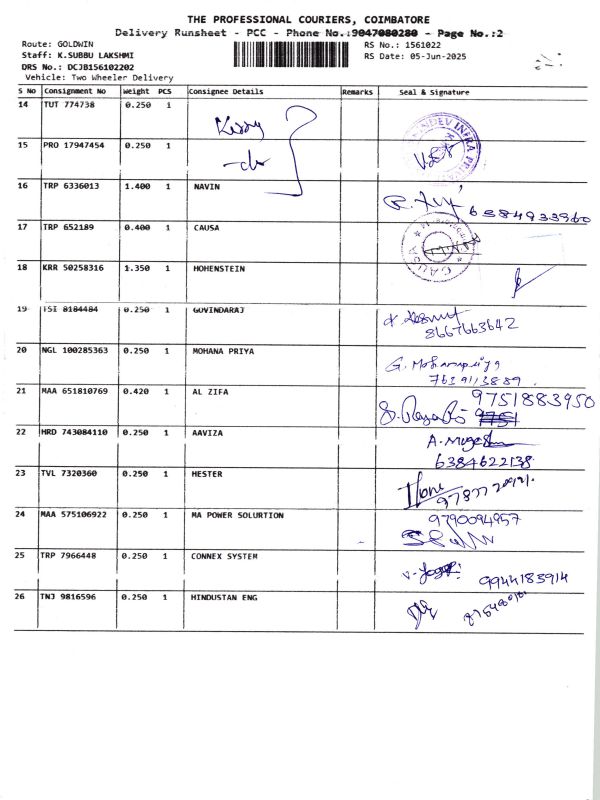 THE PROFESSIONAL COURIERS, COIMBATORE
Delivery Runsheet - PCC - Phone No.:9047080280 - Page No.:2
Route: GOLDWIN
RS No.: 1561022
Staff: K.SUBBU LAKSHMI
RS Date: 05-Jun-2025
DRS No.: DCJB156102202
Vehicle: Two Wheeler Delivery
S No Consignment No Weight PCS Consignee Details Remarks Seal & Signature
14 TUT 774738 0.250 1
15 PRO 17947454 0.250 1
16 TRP 6336013 1.400 1 NAVIN
6384933960
17 TRP 652189 0.400 1 CAUSA
CAUSA
18 KRR 50258316 1.350 1 HOHENSTEIN
19 TSI 8184484 0.250 1 GOVINDARAJ
8667663642
20 NGL 100285363 0.250 1 MOHANA PRIYA
G. Mohanapriya
7639113889
21 MAA 651810769 0.420 1 AL ZIFA
9751883950
22 HRD 743084110 0.250 1 AAVIZA
A. Mugesh
6384622138
23 TVL 7320360 0.250 1 HESTER
24 MAA 575106922 0.250 1 MA POWER SOLURTION
9790094957
25 TRP 7966448 0.250 1 CONNEX SYSTEM
9944183914
26 TNJ 9816596 0.250 1 HINDUSTAN ENG